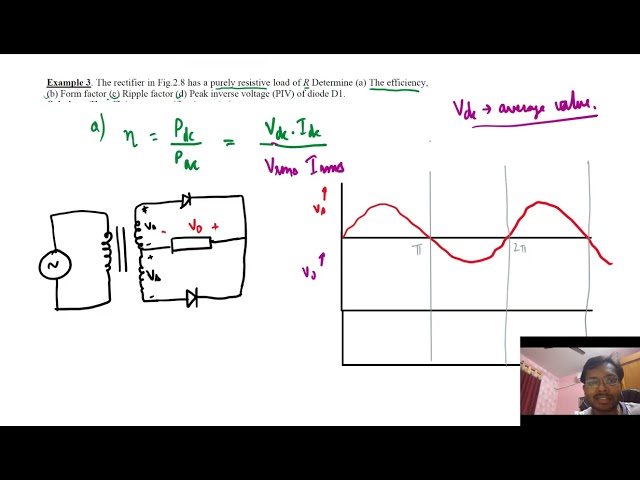 Example 3. The rectifier in Fig.2.8 has a purely resistive load of R Determine (a) The efficiency,
(b) Form factor (c) Ripple factor (d) Peak inverse voltage (PIV) of diode D1.
Vdc → average value.
a) η = Pdc / Pac = Vdc . Idc / Vrms Irms
+
Vs - Vo +
-
+
Vs
-
~
Vs ↑
π 2π
Vo ↑